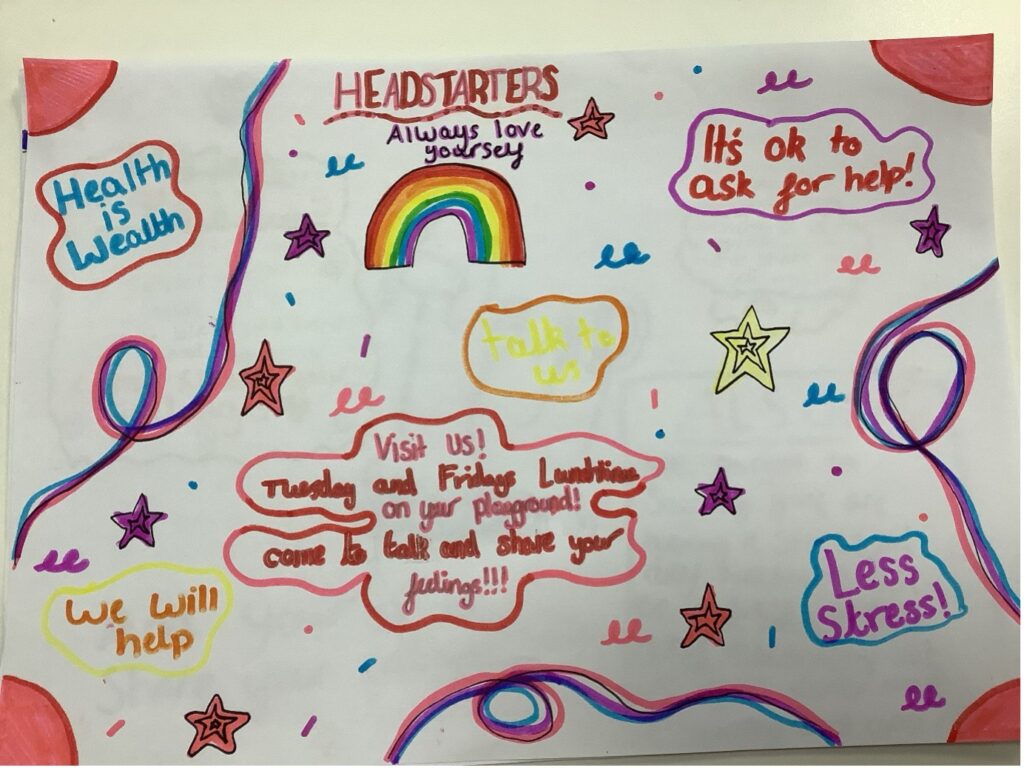 HEADSTARTERS
Always love
yourself
It's ok to
ask for help!
Health
is
Wealth
talk to
us
Visit Us!
Tuesday and Fridays Lunchtime
on your playground!
come to talk and share your
feelings!!!
We will
help
Less
Stress!